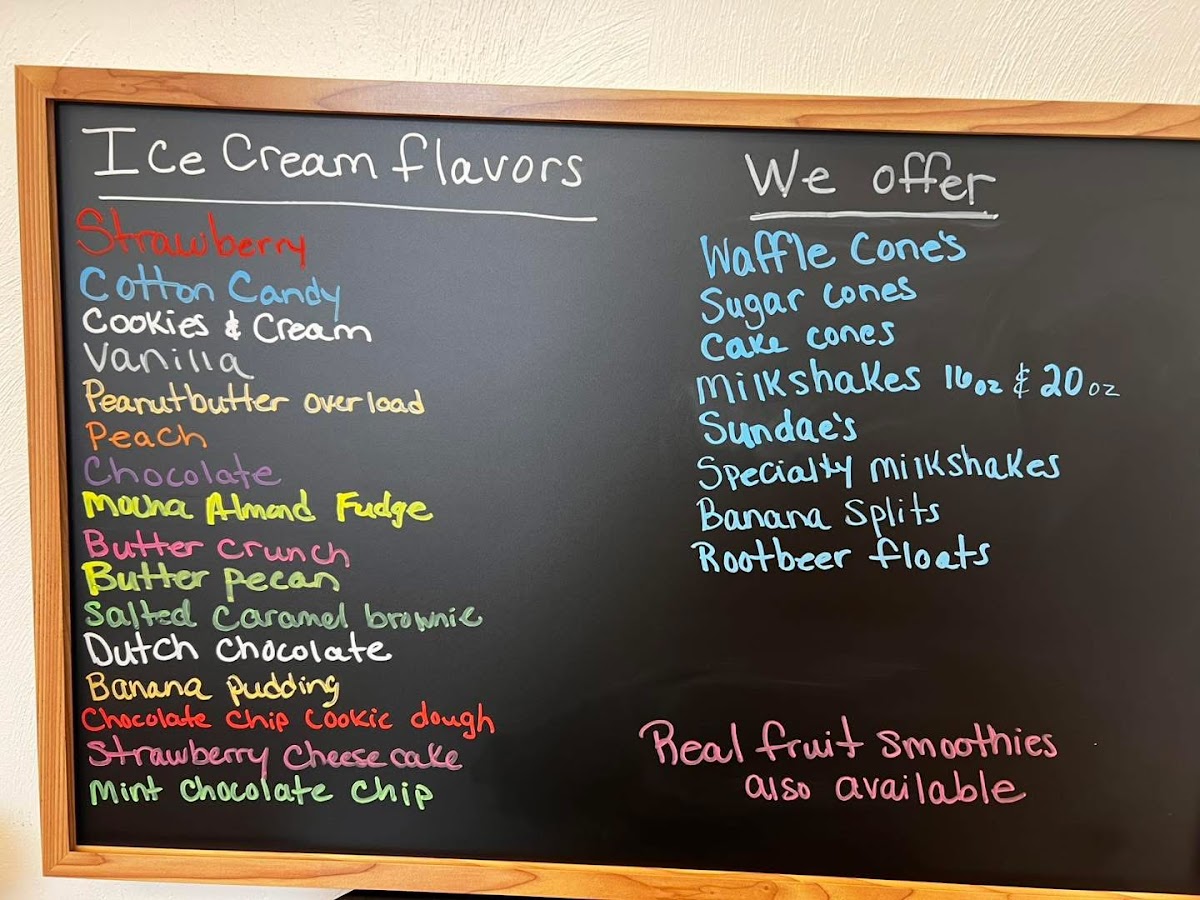 Ice Cream flavors
Strawberry
Cotton Candy
Cookies & Cream
Vanilla
Peanutbutter overload
Peach
Chocolate
Mocha Almond Fudge
Butter crunch
Butter pecan
Salted Caramel brownie
Dutch chocolate
Banana pudding
Chocolate chip cookie dough
Strawberry cheese cake
Mint chocolate chip
We offer
Waffle Cone's
Sugar cones
Cake cones
Milkshakes 16oz & 20oz
Sundae's
Specialty milkshakes
Banana Splits
Rootbeer floats
Real fruit smoothies
also available